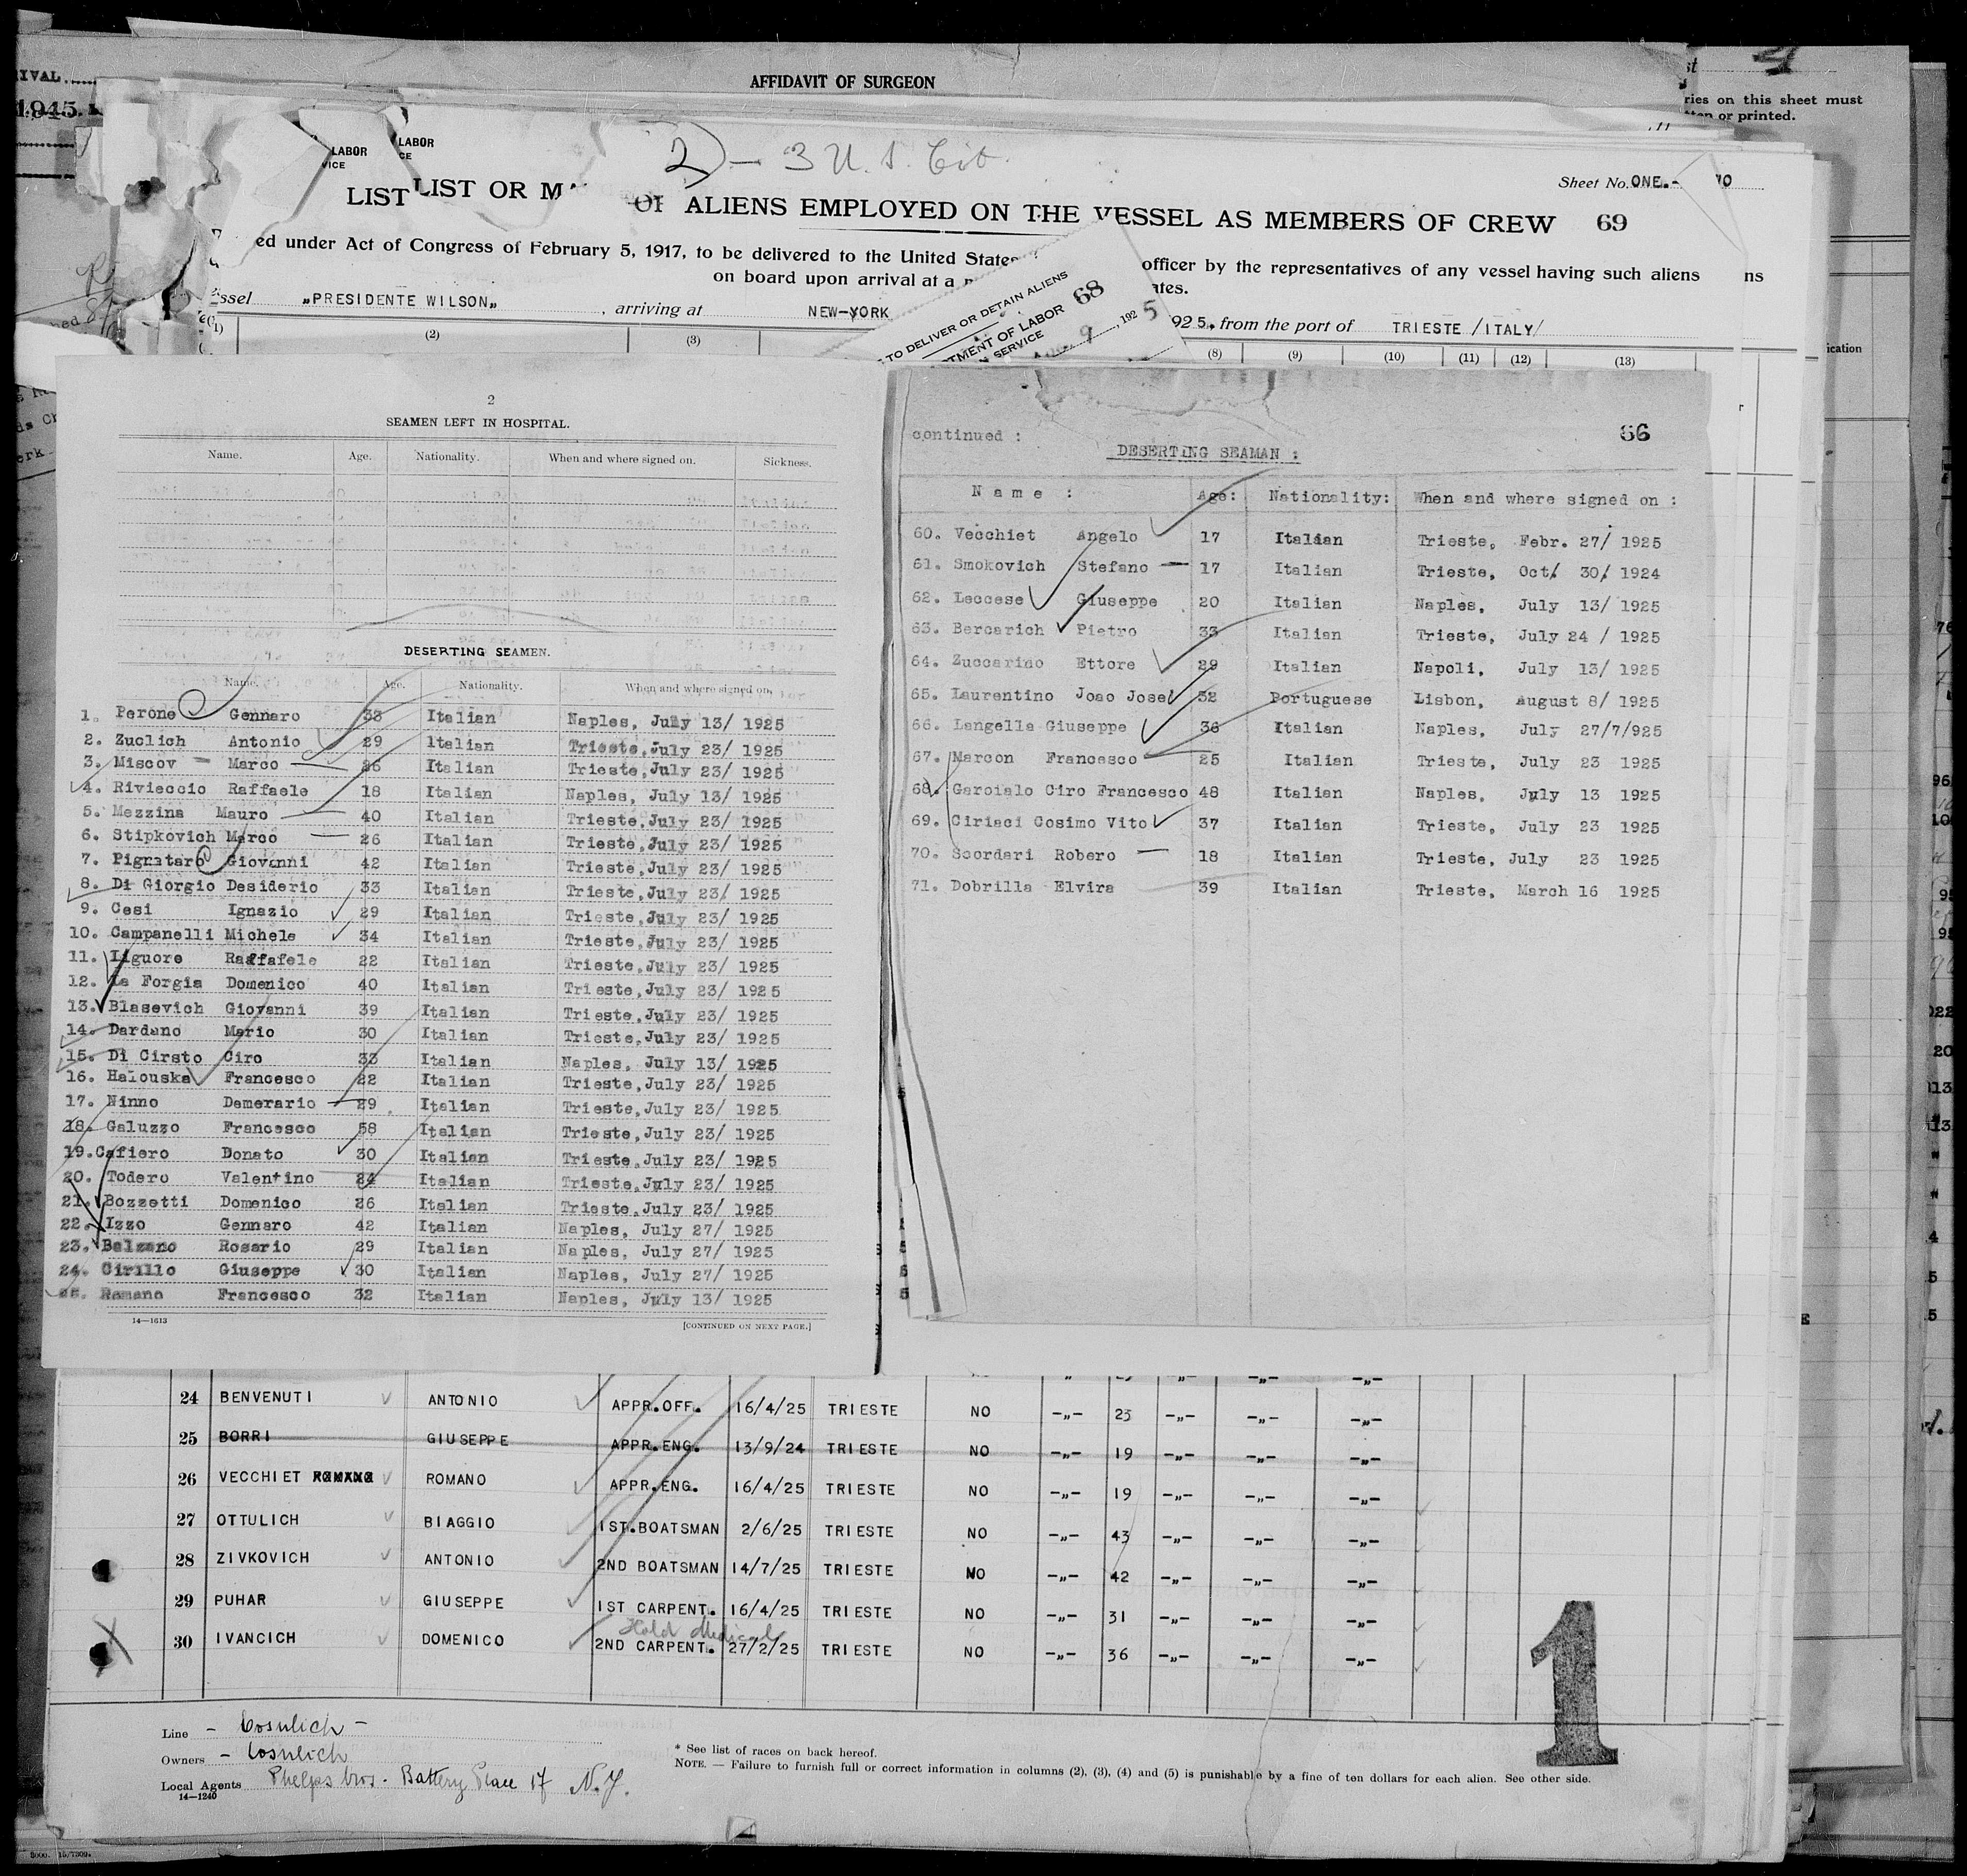 RIVAL
1945.
AFFIDAVIT OF SURGEON
ries on this sheet must
or printed.
LABOR
LABOR
VICE
CE
2) — 3 U. S. Cit.
Sheet No. ONE.-
LIST
LIST OR MA
OF ALIENS EMPLOYED ON THE VESSEL AS MEMBERS OF CREW 69
ed under Act of Congress of February 5, 1917, to be delivered to the United States
officer by the representatives of any vessel having such aliens
ns
on board upon arrival at a
ates.
ssel „PRESIDENTE WILSON„ , arriving at NEW-YORK
925, from the port of TRIESTE /ITALY/
TO DELIVER OR DETAIN ALIENS
TMENT OF LABOR 68
SERVICE
9, 1925
(1) (2) (3) (8) (9) (10) (11) (12) (13)
ication
2
SEAMEN LEFT IN HOSPITAL.
Name. Age. Nationality. When and where signed on. Sickness.
DESERTING SEAMEN.
Name. Age. Nationality. When and where signed on.
1. Perone Gennaro 33 Italian Naples, July 13/ 1925
2. Zuclich Antonio 29 Italian Trieste,July 23/ 1925
3. Miscov Marco 26 Italian Trieste,July 23/ 1925
4. Rivieccio Raffaele 18 Italian Naples, July 13/ 1925
5. Mezzina Mauro 40 Italian Trieste,July 23/ 1925
6. Stipkovich Marco 26 Italian Trieste,July 23/ 1925
7. Pignataro Giovanni 42 Italian Trieste,July 23/ 1925
8. Di Giorgio Desiderio 33 Italian Trieste,July 23/ 1925
9. Cesi Ignazio 29 Italian Trieste,July 23/ 1925
10. Campanelli Michele 34 Italian Trieste,July 23/ 1925
11. Liguore Raffafele 22 Italian Trieste,July 23/ 1925
12. La Forgia Domenico 40 Italian Trieste,July 23/ 1925
13. Blasevich Giovanni 39 Italian Trieste,July 23/ 1925
14. Dardano Mario 30 Italian Trieste,July 23/ 1925
15. Di Cirsto Ciro 33 Italian Naples, July 13/ 1925
16. Halouska Francesco 22 Italian Trieste,July 23/ 1925
17. Ninno Demerario 29 Italian Trieste,July 23/ 1925
18. Galuzzo Francesco 58 Italian Trieste,July 23/ 1925
19.Cafiero Donato 30 Italian Trieste,July 23/ 1925
20. Todero Valentino 24 Italian Trieste,July 23/ 1925
21. Bozzetti Domenico 26 Italian Trieste,July 23/ 1925
22. Izzo Gennaro 42 Italian Naples, July 27/ 1925
23. Balzano Rosario 29 Italian Naples, July 27/ 1925
24. Cirillo Giuseppe 30 Italian Naples, July 27/ 1925
25. Romano Francesco 32 Italian Naples, July 13/ 1925
14—1613
[CONTINUED ON NEXT PAGE.]
continued : 66
DESERTING SEAMAN :
Name : Age: Nationality: When and where signed on :
60. Vecchiet Angelo 17 Italian Trieste, Febr. 27/ 1925
61. Smokovich Stefano 17 Italian Trieste, Oct. 30/ 1924
62. Leccese Giuseppe 20 Italian Naples, July 13/ 1925
63. Bercarich Pietro 33 Italian Trieste, July 24 / 1925
64. Zuccarino Ettore 29 Italian Napoli, July 13/ 1925
65. Laurentino Joao Jose 32 Portuguese Lisbon, August 8/ 1925
66. Langella Giuseppe 36 Italian Naples, July 27/7/925
67. Marcon Francesco 25 Italian Trieste, July 23 1925
68. Garoialo Ciro Francesco 48 Italian Naples, July 13 1925
69. Ciriaci Cosimo Vito 37 Italian Trieste, July 23 1925
70. Scordari Robero 18 Italian Trieste, July 23 1925
71. Dobrilla Elvira 39 Italian Trieste, March 16 1925
24 BENVENUTI ANTONIO APPR.OFF. 16/4/25 TRIESTE NO -„- 23 -„- -„- -„-
25 BORRI GIUSEPPE APPR.ENG. 13/9/24 TRIESTE NO -„- 19 -„- -„- -„-
26 VECCHIET ROMANO APPR.ENG. 16/4/25 TRIESTE NO -„- 19 -„- -„- -„-
27 OTTULICH BIAGGIO 1ST.BOATSMAN 2/6/25 TRIESTE NO -„- 43 -„- -„- -„-
28 ZIVKOVICH ANTONIO 2ND BOATSMAN 14/7/25 TRIESTE NO -„- 42 -„- -„- -„-
29 PUHAR GIUSEPPE 1ST CARPENT. 16/4/25 TRIESTE NO -„- 31 -„- -„- -„-
Hold Medical
30 IVANCICH DOMENICO 2ND CARPENT. 27/2/25 TRIESTE NO -„- 36 -„- -„- -„-
1
Line - Cosulich -
Owners - Cosulich
Local Agents Phelps bros. Battery Place 17 N.Y.
14—1240
* See list of races on back hereof.
NOTE. — Failure to furnish full or correct information in columns (2), (3), (4) and (5) is punishable by a fine of ten dollars for each alien. See other side.